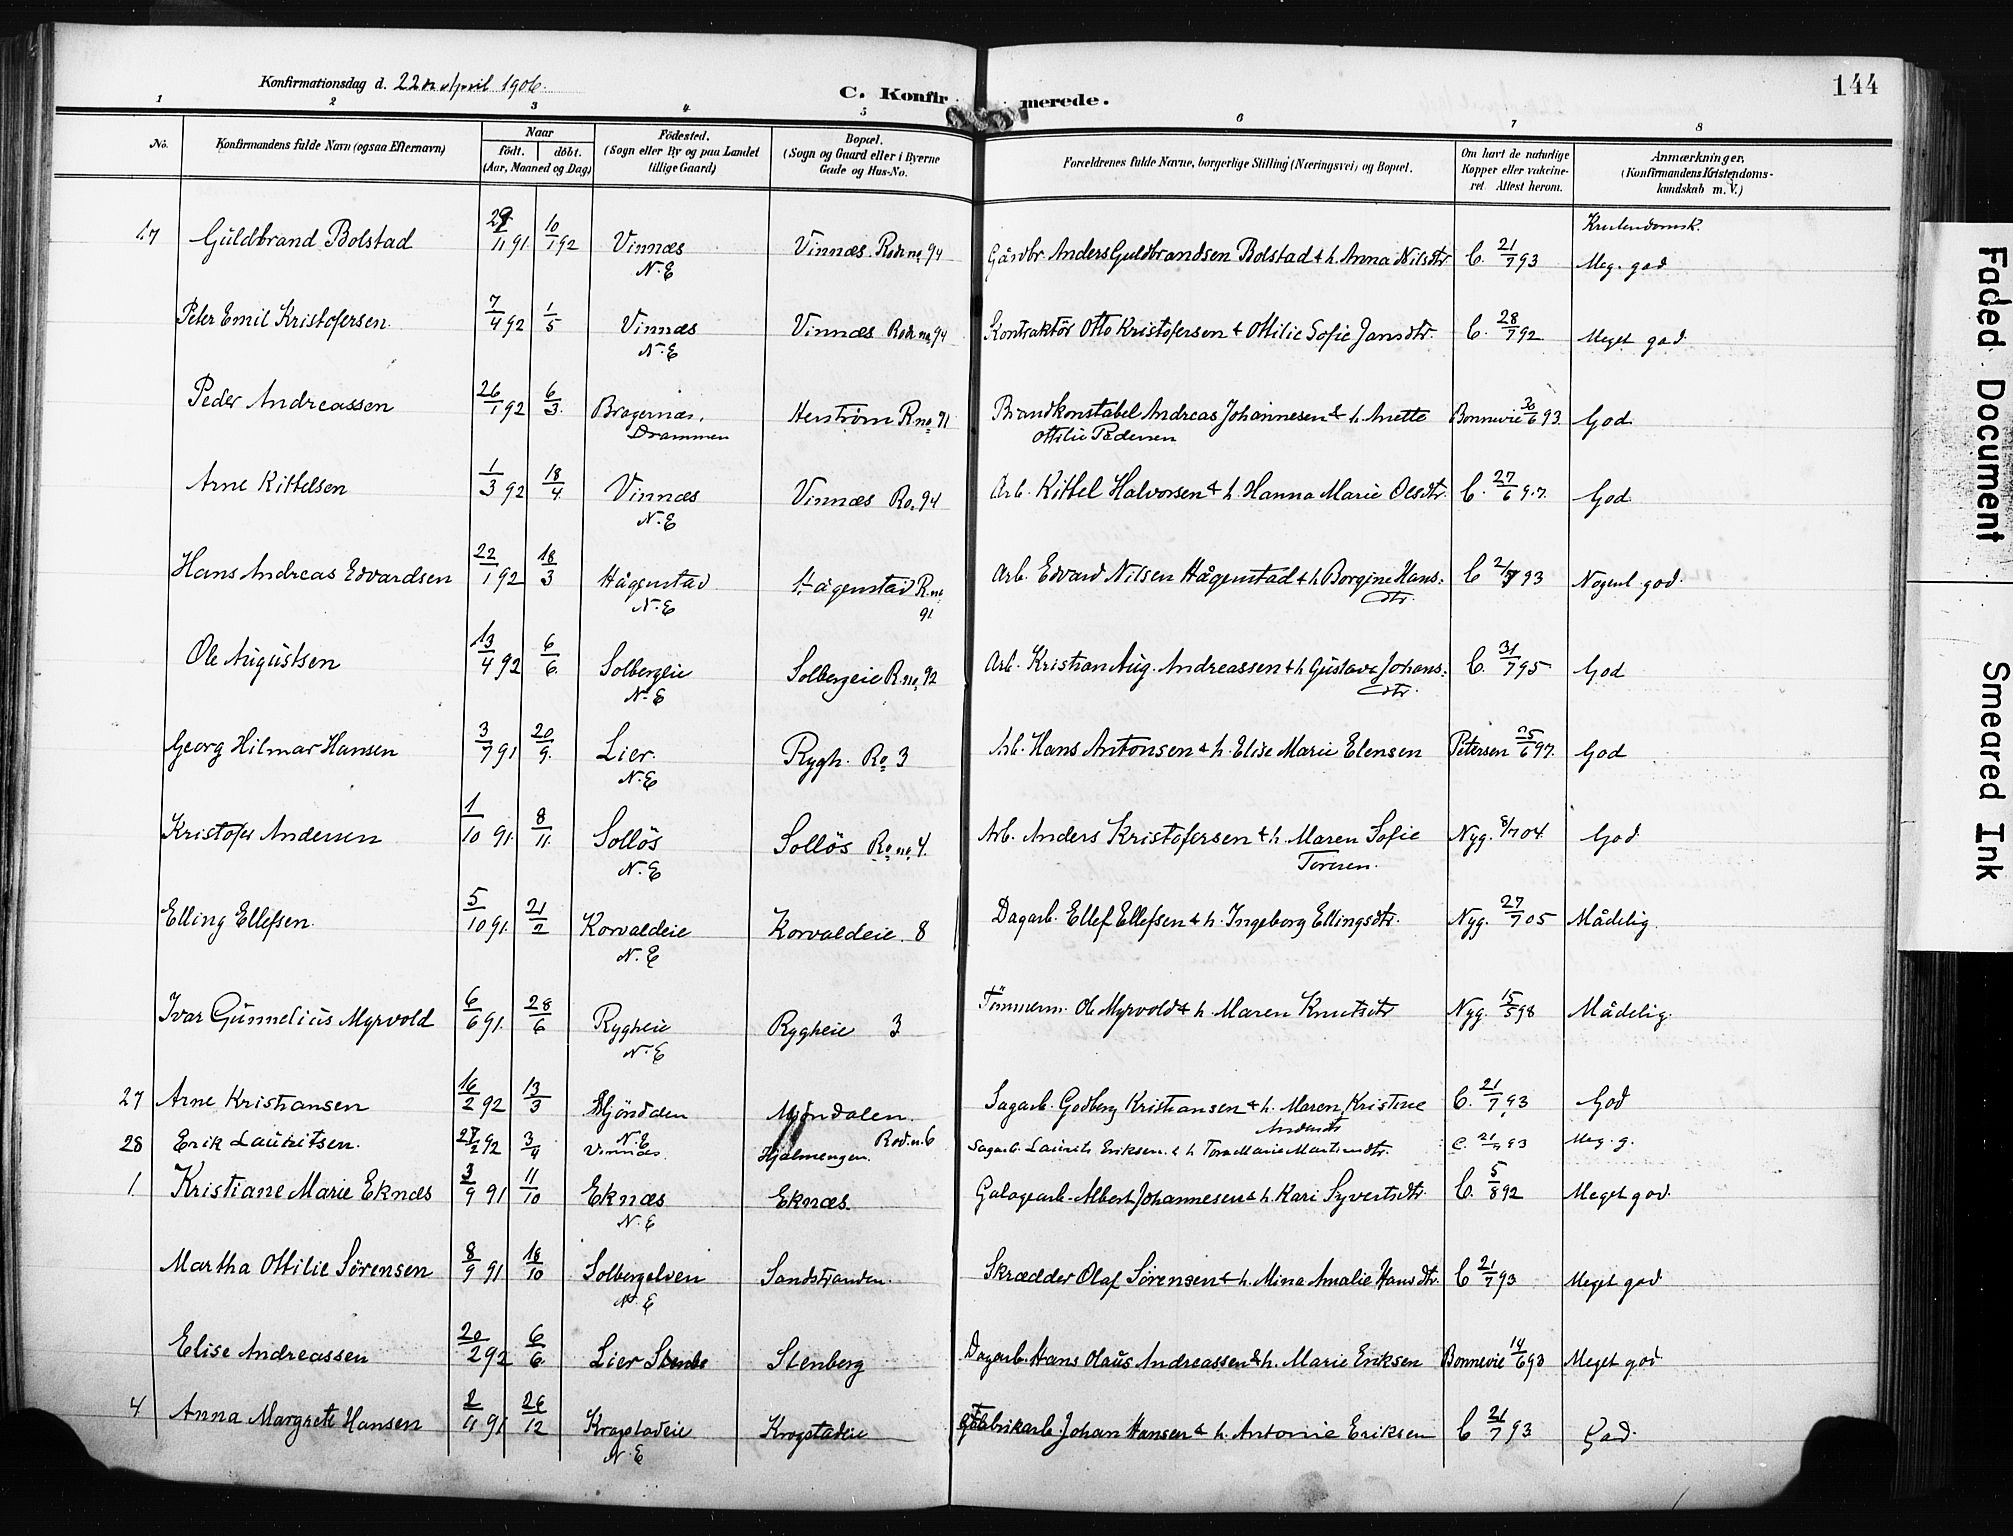 Konfirmationsdag d. 22de April 1906.
C. Konfirmerede.
144
1 2 3 4 5 6 7 8
No.
Konfirmandens fulde Navn (ogsaa Efternavn)
Naar
født. døbt.
(Aar, Maaned og Dag)
Fødested.
(Sogn eller By og paa Landet
tillige Gaard)
Bopæl.
(Sogn og Gaard eller i Byerne
Gade og Hus-No.
Forældrenes fulde Navne, borgerlige Stilling (Næringsvei) og Bopæl.
Om havt de naturlige
Kopper eller vakcine-
ret. Attest herom.
Anmærkninger.
(Konfirmandens Kristendoms-
kundskab m. V.)
Kristendomsk.
17 Guldbrand Bolstad 11 91 10/1 92 Vinnæs N.E Vinnæs Rode no. 94 Gårdbr. Anders Guldbrandsen Bolstad & h. Anna Nilsdtr C. 21/7 93 Meg. god
Peter Emil Kristofersen 7/4 92 1/5 Vinnæs N.E Vinnæs Rode no. 94 Kontraktör Otto Kristofersen & Ottilie Sofie Jansdtr. C. 28/7 92 Meget god.
Peder Andreassen 26/1 92 6/3. Bragernæs, Drammen Herstrøm R. no. 91 Brandkonstabel Andreas Johannesen & h. Anette Ottilie Pedersen Bonnevie 30/6 93. God
Arne Kittelsen 1/3 92 18/4. Vinnæs N.E Vinnæs Ro. 94 Arb. Kittel Halvorsen & h. Hanna Marie Olsdtr. C. 27/6 97. God
Hans Andreas Edvardsen 22/1 92 18/3 Hågenstad N.E Hågenstad R. no 91 Arb. Edvard Nilsen Hågenstad & h Borgine Hans- dtr. C 2/7 93 Nogenl. god.
Ole Augustsen 13/4 92 6/6. Solbergeie N.E Solbergeie R. no. 92 Arb. Kristian Aug. Andreassen & h Gustava Johans- dtr. C. 31/7 95 God
Georg Hilmar Hansen 3/7 91 20/9. Lier. N.E Rygh. Ro 3 Arb. Hans Antonsen & h. Elise Marie Elensen Petersen 25/6 97. God
Kristofer Andersen 1/10 91. 8/11. Solløs N.E Solløs Ro. no. 4. Arb. Anders Kristofersen & h. Maren Sofie Nyg. 8/7 04. God
Elling Ellefsen. 5/10 91. 21/2 Korvaldeie N.E Korvaldeie. 8 Dagarb. Ellef Ellefsen & h. Ingeborg Ellingsdtr. Nyg. 27/7 05 Mådelig.
Ivar Gunnelius Myrvold 6/6 91. 28/6 Rygheie N.E Rygheie 3 Tömmerm. Ole Myrvold & h. Maren Knutsdtr Nyg. 15/5 98 Mådelig.
27 Arne Kristiansen 16/2 92 13/3 Mjöndalen N.E Mjöndalen. Sagarb. Godberg Kristiansen & h. Maren Kristine Andersdtr C. 21/7 93 God
28 Erik Lauritsen. 27/2 92 3/4 Vinnæs. Hjelmengen. Rod. n. 6 Sagarb. Laurits Eriksen. & h Tora Marie Martinsdtr. C. 21/7 93 Meg. g.
1. Kristiane Marie Eknæs 3/9 91 11/10 Eknæs N.E Eknæs. Galogearb. Albert Johannesen & h. Kari Syvertsdtr. C. 5/8 92 Meget god.
Martha Ottilie Sørensen 8/9 91 18/10 Solbergelven N.E Sandstranden. Skrædder Olaf Sørensen & h. Mina Amalie Hansdtr. C 21/7 93 Meget god
Elise Andreassen 20/2 92 6/6. Lier Stenberg Dagarb. Hans Olaus Andreassen & h. Marie Eriksen Bonnevie 14/6 93 Meget god
4 Anna Margrete Hansen 2/11 91 26/12 Krogstadeie N.E Krogstadeie Fabrikarb. Johan Hansen & h. Antonie Eriksen C 21/7 93 God.
Faded Document
Smeared Ink